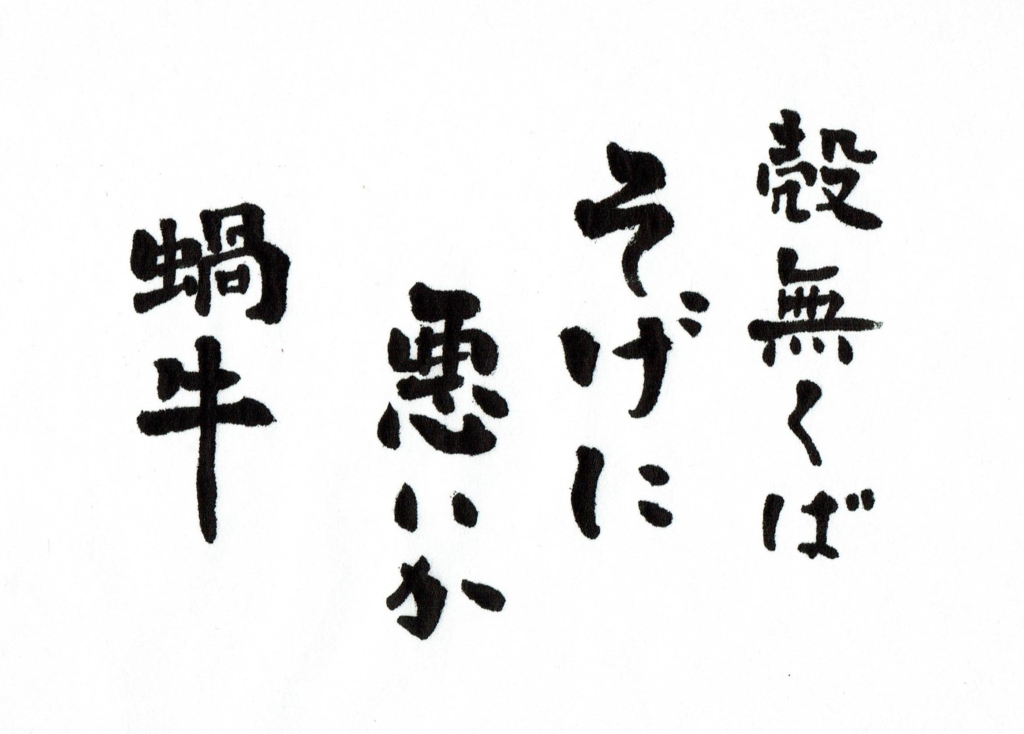 殻無くば
そげに
悪いか
蝸牛